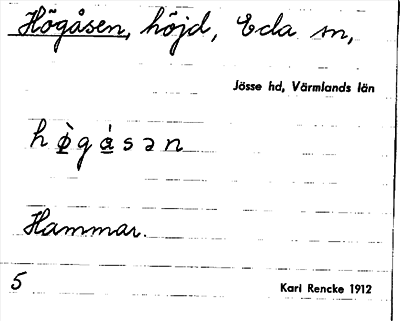 Högåsen, höjd, Eda sn,
Jösse hd, Värmlands län
hø̀gàsən
Hammar.
5
Karl Rencke 1912